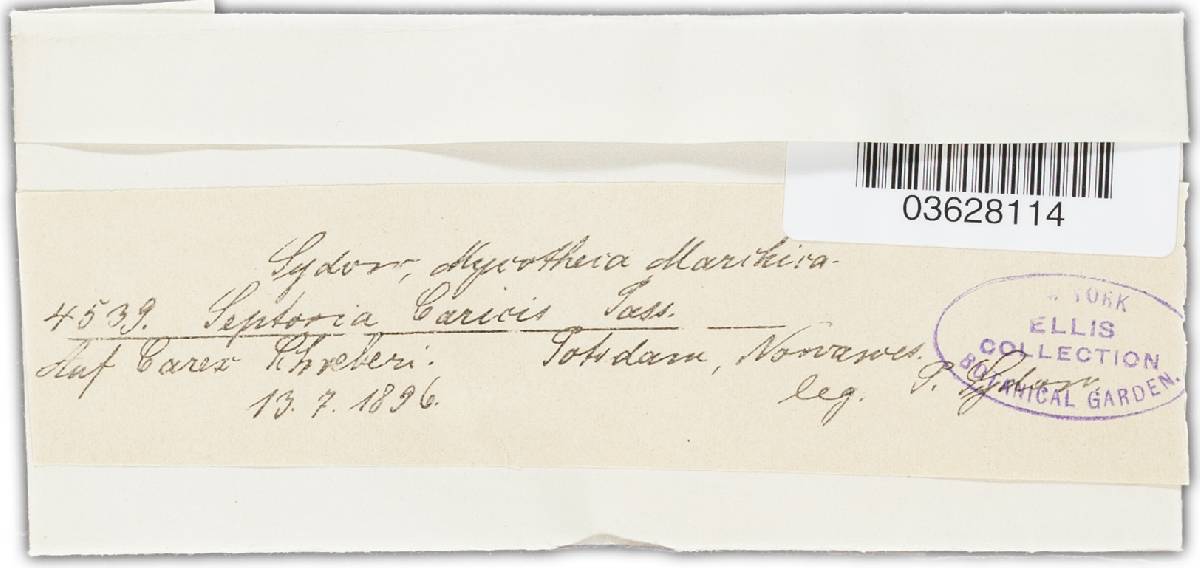 03628114
Sydow, Mycotheca Marchica.
4539. Septoria Caricis Pass.
Auf Carex Schreberi. Potsdam, Nowawes.
13. 7. 1896. leg. P. Sydow.
YORK
ELLIS
COLLECTION
BOTANICAL GARDEN.